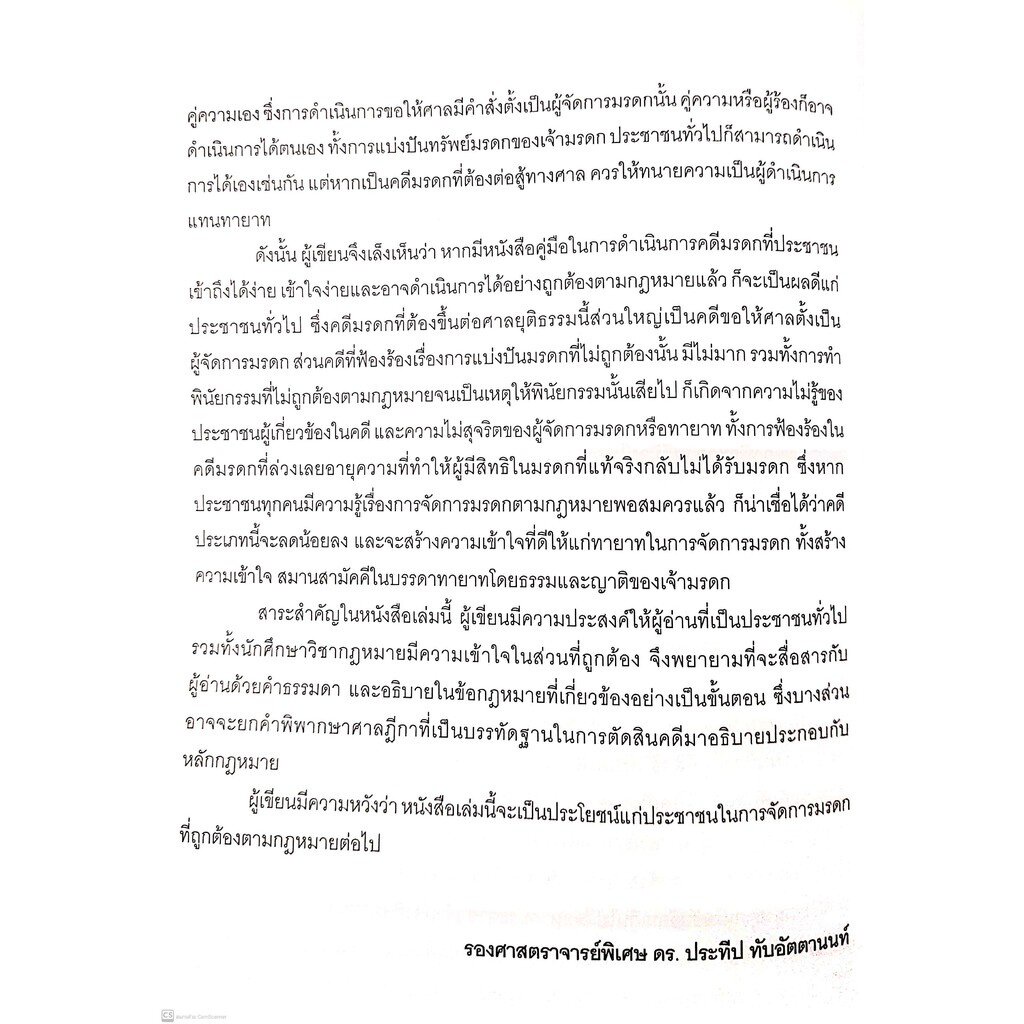 คู่ความเอง ซึ่งการดำเนินการขอให้ศาลมีคำสั่งตั้งเป็นผู้จัดการมรดกนั้น คู่ความหรือผู้ร้องก็อาจ
ดำเนินการได้ตนเอง ทั้งการแบ่งปันทรัพย์มรดกของเจ้ามรดก ประชาชนทั่วไปก็สามารถดำเนิน
การได้เองเช่นกัน แต่หากเป็นคดีมรดกที่ต้องต่อสู้ทางศาล ควรให้ทนายความเป็นผู้ดำเนินการ
แทนทายาท
ดังนั้น ผู้เขียนจึงเล็งเห็นว่า หากมีหนังสือคู่มือในการดำเนินการคดีมรดกที่ประชาชน
เข้าถึงได้ง่าย เข้าใจง่ายและอาจดำเนินการได้อย่างถูกต้องตามกฎหมายแล้ว ก็จะเป็นผลดีแก่
ประชาชนทั่วไป ซึ่งคดีมรดกที่ต้องขึ้นต่อศาลยุติธรรมนี้ส่วนใหญ่เป็นคดีขอให้ศาลตั้งเป็น
ผู้จัดการมรดก ส่วนคดีที่ฟ้องร้องเรื่องการแบ่งปันมรดกที่ไม่ถูกต้องนั้น มีไม่มาก รวมทั้งการทำ
พินัยกรรมที่ไม่ถูกต้องตามกฎหมายจนเป็นเหตุให้พินัยกรรมนั้นเสียไป ก็เกิดจากความไม่รู้ของ
ประชาชนผู้เกี่ยวข้องในคดี และความไม่สุจริตของผู้จัดการมรดกหรือทายาท ทั้งการฟ้องร้องใน
คดีมรดกที่ล่วงเลยอายุความที่ทำให้ผู้มีสิทธิในมรดกที่แท้จริงกลับไม่ได้รับมรดก ซึ่งหาก
ประชาชนทุกคนมีความรู้เรื่องการจัดการมรดกตามกฎหมายพอสมควรแล้ว ก็น่าเชื่อได้ว่าคดี
ประเภทนี้จะลดน้อยลง และจะสร้างความเข้าใจที่ดีให้แก่ทายาทในการจัดการมรดก ทั้งสร้าง
ความเข้าใจ สมานสามัคคีในบรรดาทายาทโดยธรรมและญาติของเจ้ามรดก
สาระสำคัญในหนังสือเล่มนี้ ผู้เขียนมีความประสงค์ให้ผู้อ่านที่เป็นประชาชนทั่วไป
รวมทั้งนักศึกษาวิชากฎหมายมีความเข้าใจในส่วนที่ถูกต้อง จึงพยายามที่จะสื่อสารกับ
ผู้อ่านด้วยคำธรรมดา และอธิบายในข้อกฎหมายที่เกี่ยวข้องอย่างเป็นขั้นตอน ซึ่งบางส่วน
อาจจะยกคำพิพากษาศาลฎีกาที่เป็นบรรทัดฐานในการตัดสินคดีมาอธิบายประกอบกับ
หลักกฎหมาย
ผู้เขียนมีความหวังว่า หนังสือเล่มนี้จะเป็นประโยชน์แก่ประชาชนในการจัดการมรดก
ที่ถูกต้องตามกฎหมายต่อไป
รองศาสตราจารย์พิเศษ ดร. ประทีป ทับอัตตานนท์
CS สแกนด้วย CamScanner